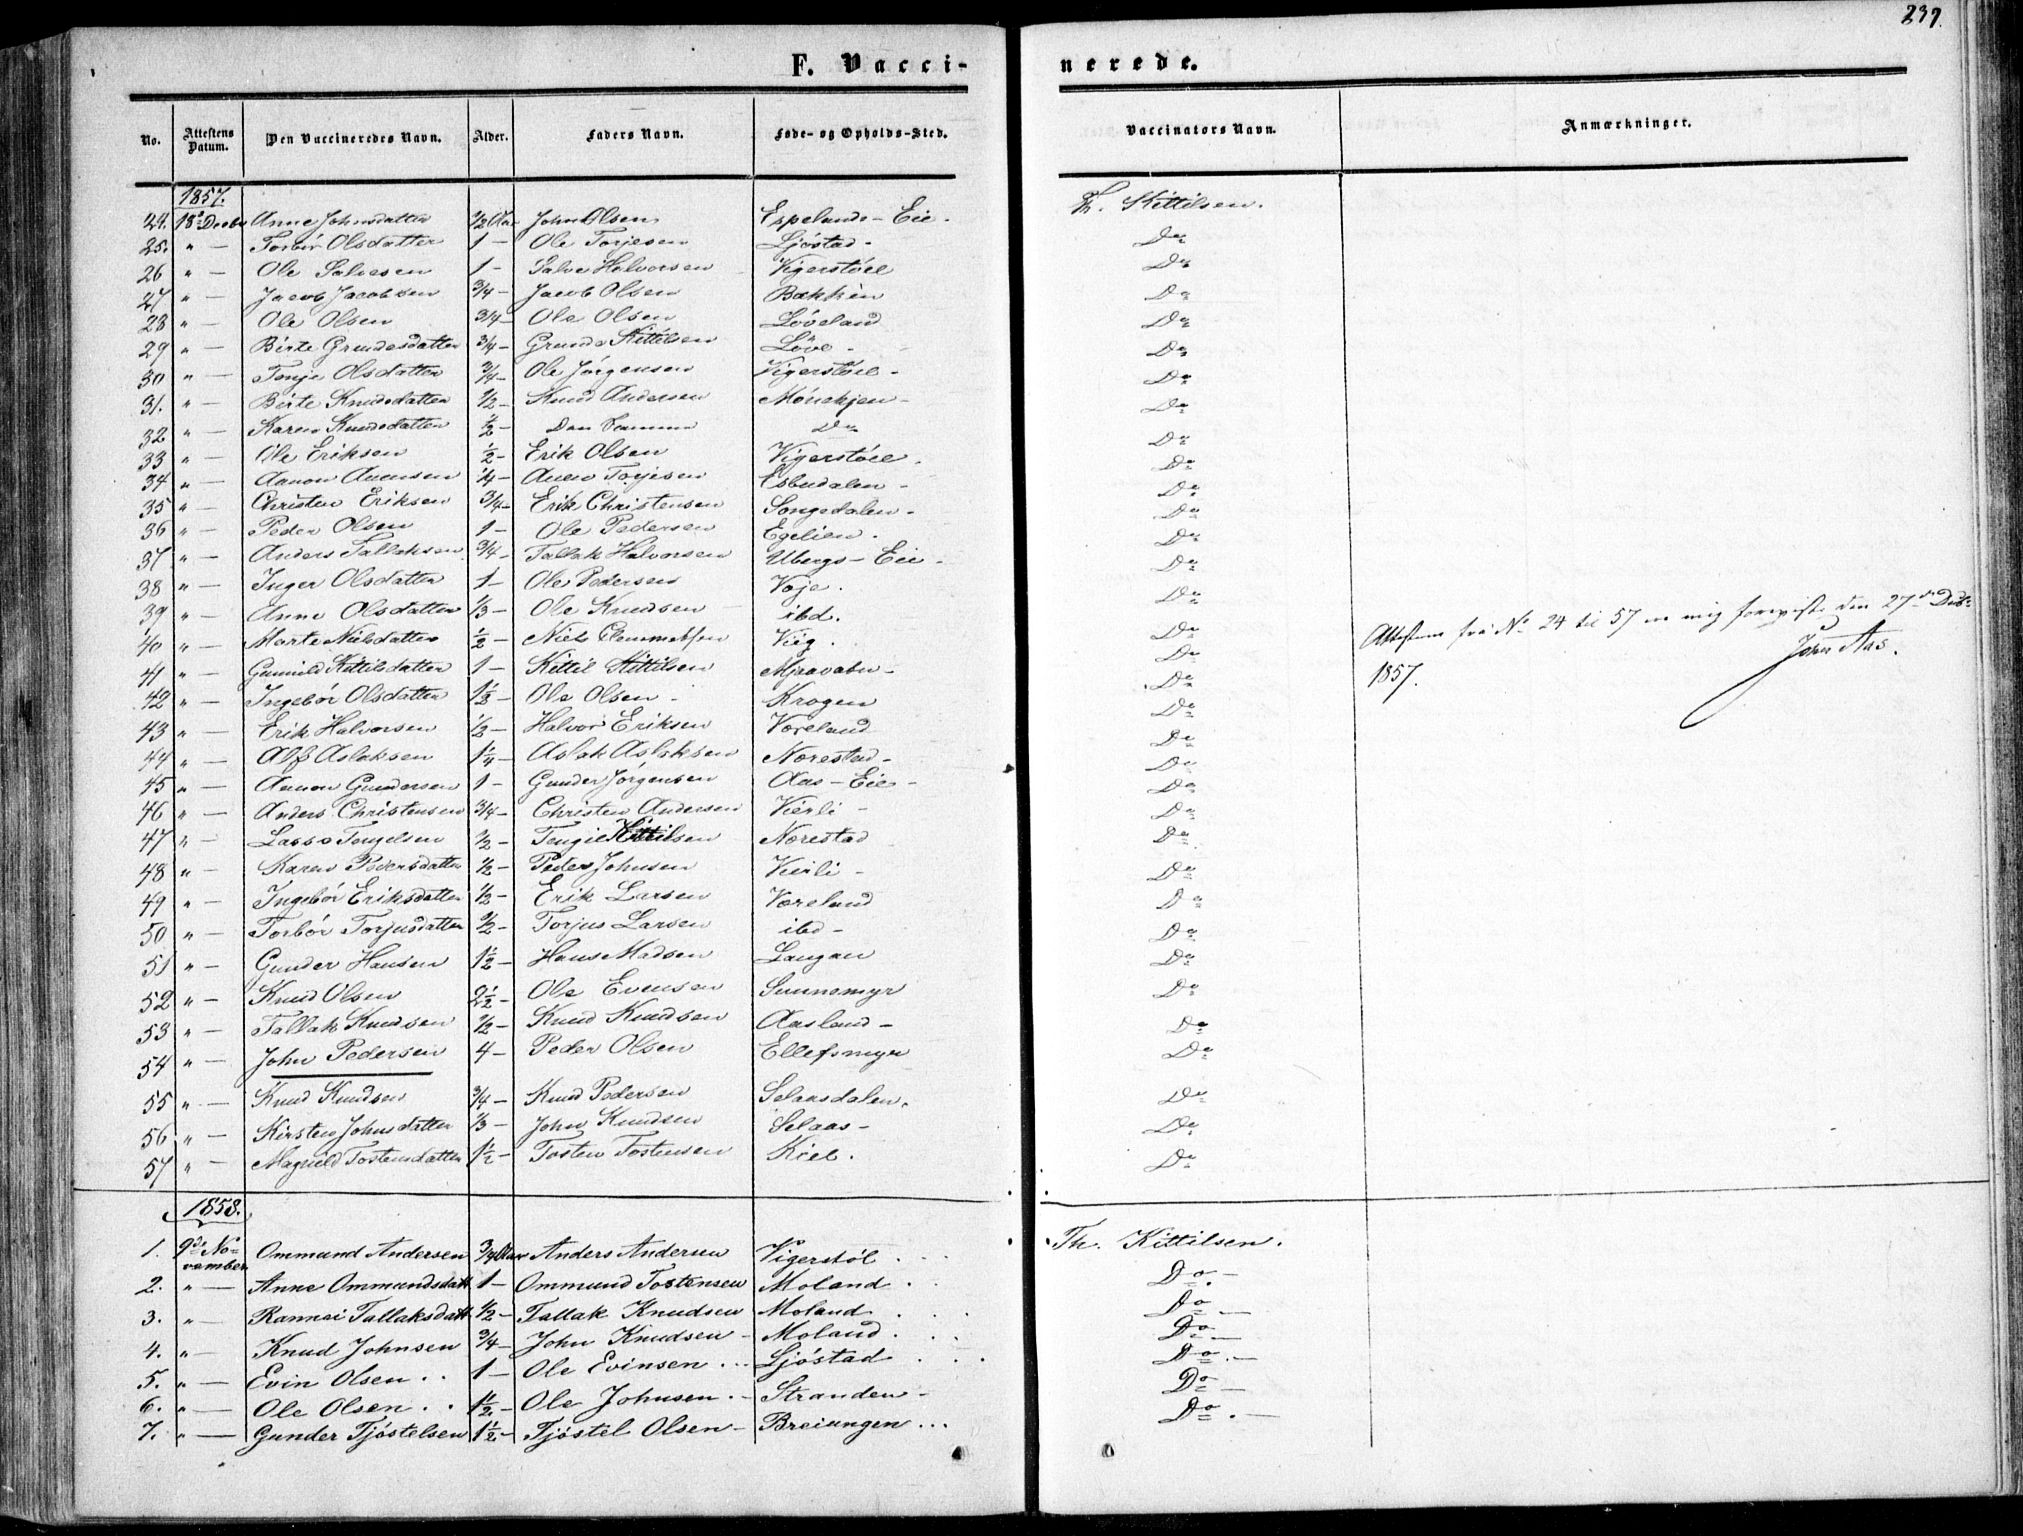 239.
F. Vaccinerede.
No. Attestens Datum. Den Vaccineredes Navn. Alder. Faders Navn. Føde- og Opholds-Sted. Vaccinators Navn. Anmærkninger.
1857.
24. 18de Decbr Anne Johnsdatter 1/2 Aar John Olsen Espelands-Eie. Th. Kittilsen.
25. " — Torbór Olsdatter 1 — Ole Torjesen Ljóstad - Do
26 " — Ole Salvesen 1 - Salve Halvorsen Vigerstóel Do
27 " — Jacob Jacobsen 3/4 - Jacob Olsen Bakken Do
28 " — Ole Olsen 3/4 - Ole Olsen Lóveland Do
29 " — Birte Grundesdatter 3/4 - Grunde Kittilsen Lóve - Do
30 " — Tonje Olsdatter 3/4 - Ole Jórgensen Vigerstóel - Do
31. " — Birte Knudsdatter 1/2 - Knud Andersen Mónekjen - Do
32 " — Karen Knudsdatter 1/2 - Den Samme Do Do
33 " — Ole Eriksen 1/2 - Erik Olsen Vigerstóel. Do
34 " — Aanon Aanensen 1/4 - Torjesen Esbudalen - Do
35 " — Christen Eriksen 3/4 - Erik Christensen Songedalen - Do
36 " — Peder Olsen 1 - Ole Pedersen Egelien. Do
37. " — Anders Tallaksen 3/4 - Tallak Halvorsen Ubergs-Eie. Do
38 " — Inger Olsdatter 1 - Ole Pedersen Voje. Do
39 " — Anne Olsdatter 1/3 - Ole Knudsen ibd. Do
40 " — Marte Nielsdatter 1/2 - Niels Clemmetsen Vieg. Do
Attesterne fra No 24 til 57 ere mig foreviste den 27de Decbr 1857.
John Aas.
41 " — Gunnild Kittilsdatter 1 - Kittil Kittilsen Mjaavatn - Do
42 " — Ingebór Olsdatter 1 1/2 - Ole Olsen - Krogen Do
43 " — Erik Halvorsen 1/2 - Halvor Eriksen Væreland Do
44 " — Alf Aslaksen 1 1/4 - Aslak Aslaksen Nærestad - Do
45 " — Aanon Gundersen 1 - Gunder Jórgensen Aas-Eie - Do
46 " — Anders Christensen 3/4 - Christen Andersen Vierli - Do
47 " — Lasse Tengelsen 1/2 - Tengel Kittilsen Nærestad Do
48 " — Karen Pedersdatter 1/2 - Peder Johnsen Vierli - Do
49 " — Ingebór Eriksdatter 1/2 - Erik Larsen Væreland Do
50 " — Torbór Torjusdatter 1/2 - Torjus Larsen ibd - Do
51 " — Gunder Hansen 1 1/2 - Hans Madsen Langan Do
52 " — Knud Olsen 2 1/2 - Ole Evensen Sunnemyr Do
53 " — Tallak Knudsen 1/2 - Knud Knudsen Aasland - Do
54 " — John Pedersen 4 - Peder Olsen Ellefsmyr Do
55 " — Knud Knudsen 3/4 - Knud Pedersen Selaasdalen. Do
56 " — Kirsten Johnsdatter 1/3 - John Knudsen Selaas - Do
57 " — Magnild Tostensdatter 1 1/2 - Tosten Tostensen Kiel. Do
1858.
1. 9de November Ommund Andersen 3/4 Aar Anders Andersen Vigerstól. Th. Kittilsen.
2. " — Anne Ommundsdatt 1 - Ommund Tostensen Moland. Do. -
3. " — Rannei Tallaksdatt 1/2 - Tallak Knudsen Moland. Do. —
4. " — Knud Johnsen 3/4 - John Knudsen - Moland. Do —
5. " — Evin Olsen.. 1 - Ole Evinsen... Ljóstad Do. —
6. " — Ole Olsen.. 1 1/2 - Ole Johnsen. - Stranden - Do —
7. " — Gunder Tjóstelsen 1 1/2 - Tjóstel Olsen - Breiungen... Do. —